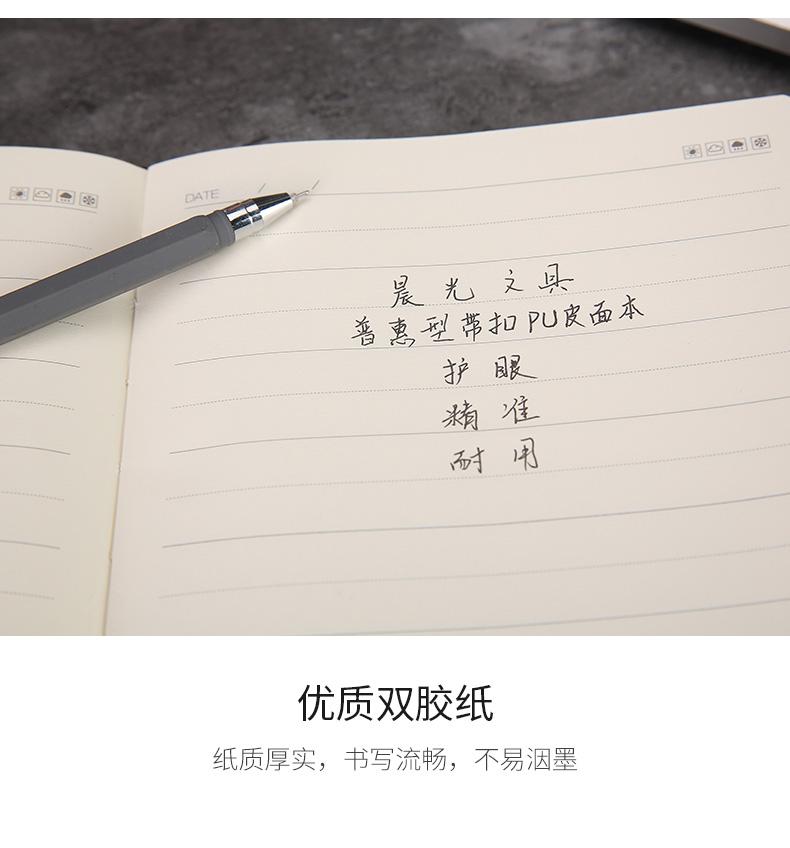 DATE / /
晨光文具
普惠型带扣PU皮面本
护眼
精准
耐用
优质双胶纸
纸质厚实，书写流畅，不易洇墨